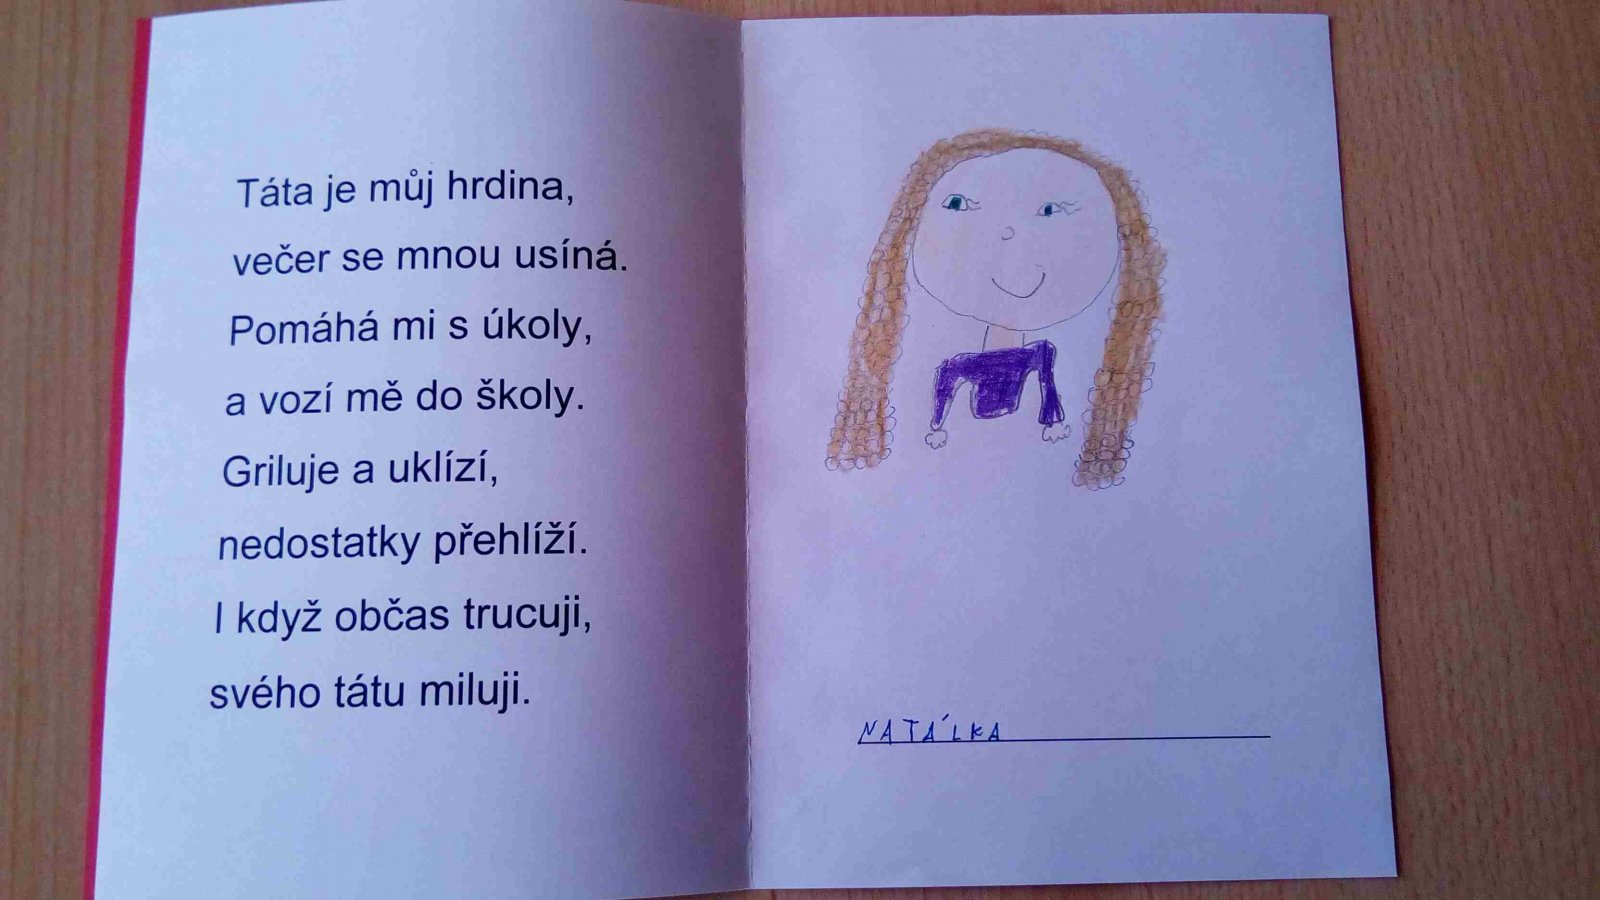 Táta je můj hrdina,
večer se mnou usíná.
Pomáhá mi s úkoly,
a vozí mě do školy.
Griluje a uklízí,
nedostatky přehlíží.
I když občas trucuji,
svého tátu miluji.
NATÁLKA